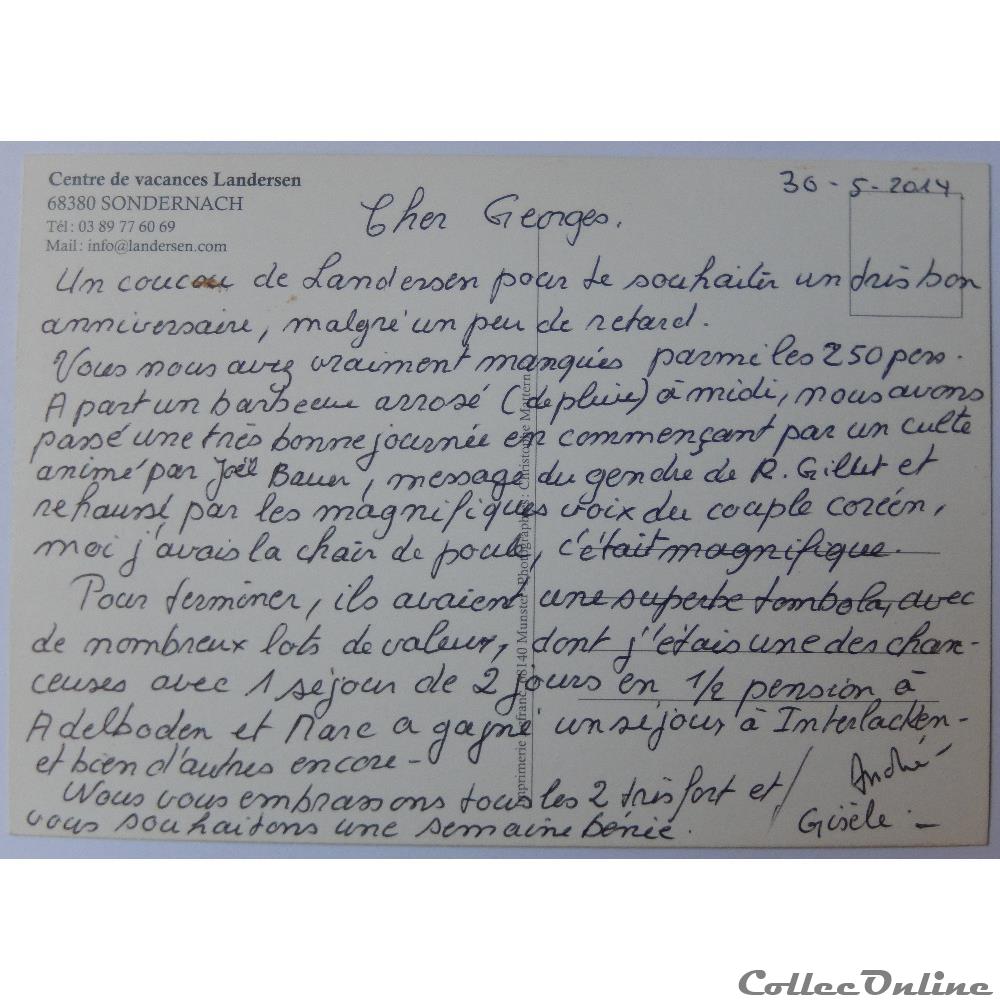 Centre de vacances Landersen
68380 SONDERNACH
Tél : 03 89 77 60 69
Mail : info@landersen.com
30-5-2014
Cher Georges.
Un coucou de Landersen pour te souhaiter un très bon
anniversaire, malgré un peu de retard.
Vous nous avez vraiment manqués parmi les 250 pers.
A part un barbecue arrosé (de pluie) à midi, nous avons
passé une très bonne journée en commençant par un culte
animé par Joël Bauer, message du gendre de R. Gillet et
rehaussé par les magnifiques voix du couple coréen,
moi j'avais la chair de poule, c'était magnifique.
Pour terminer, ils avaient une superbe tombola, avec
de nombreux lots de valeur, dont j'étais une des chan-
ceuses avec 1 séjour de 2 jours en 1/2 pension à
Adelboden et Marc a gagné un séjour à Interlacken -
et bien d'autres encore -
Nous vous embrassons tous les 2 très fort et /
vous souhaitons une semaine bénie.
André
Gisèle -
Imprimerie Lefranc, 68140 Munster - Photographies : Christophe Mattern
CollecOnline